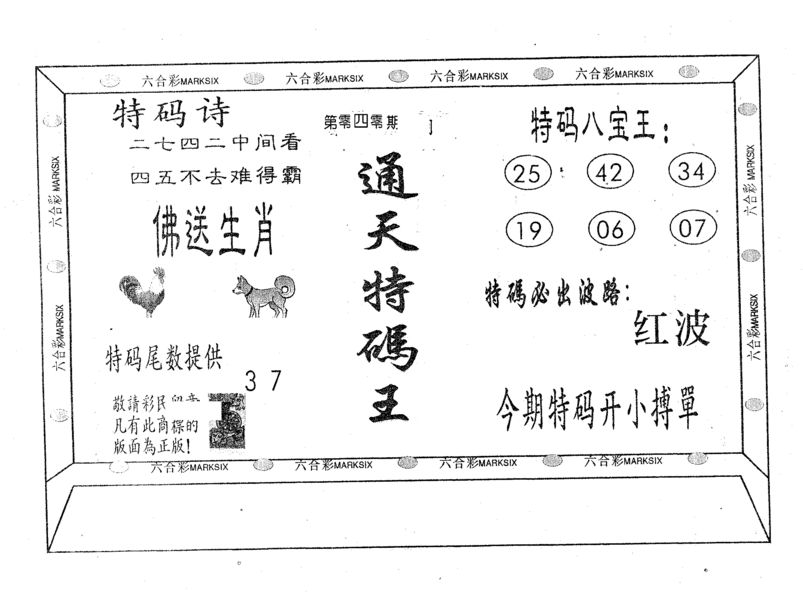 六合彩MARKSIX 六合彩MARKSIX 六合彩MARKSIX 六合彩MARKSIX
六合彩MARKSIX
六合彩MARKSIX
特码诗
二七四二中间看
四五不去难得霸
佛送生肖
特码尾数提供
3 7
敬請彩民留意
凡有此商標的
版面為正版!
第零四零期
通天特碼王
特码八宝王:
25 42 34
19 06 07
特碼必出波路:
红波
今期特码开小搏單
六合彩MARKSIX
六合彩MARKSIX
六合彩MARKSIX 六合彩MARKSIX 六合彩MARKSIX 六合彩MARKSIX